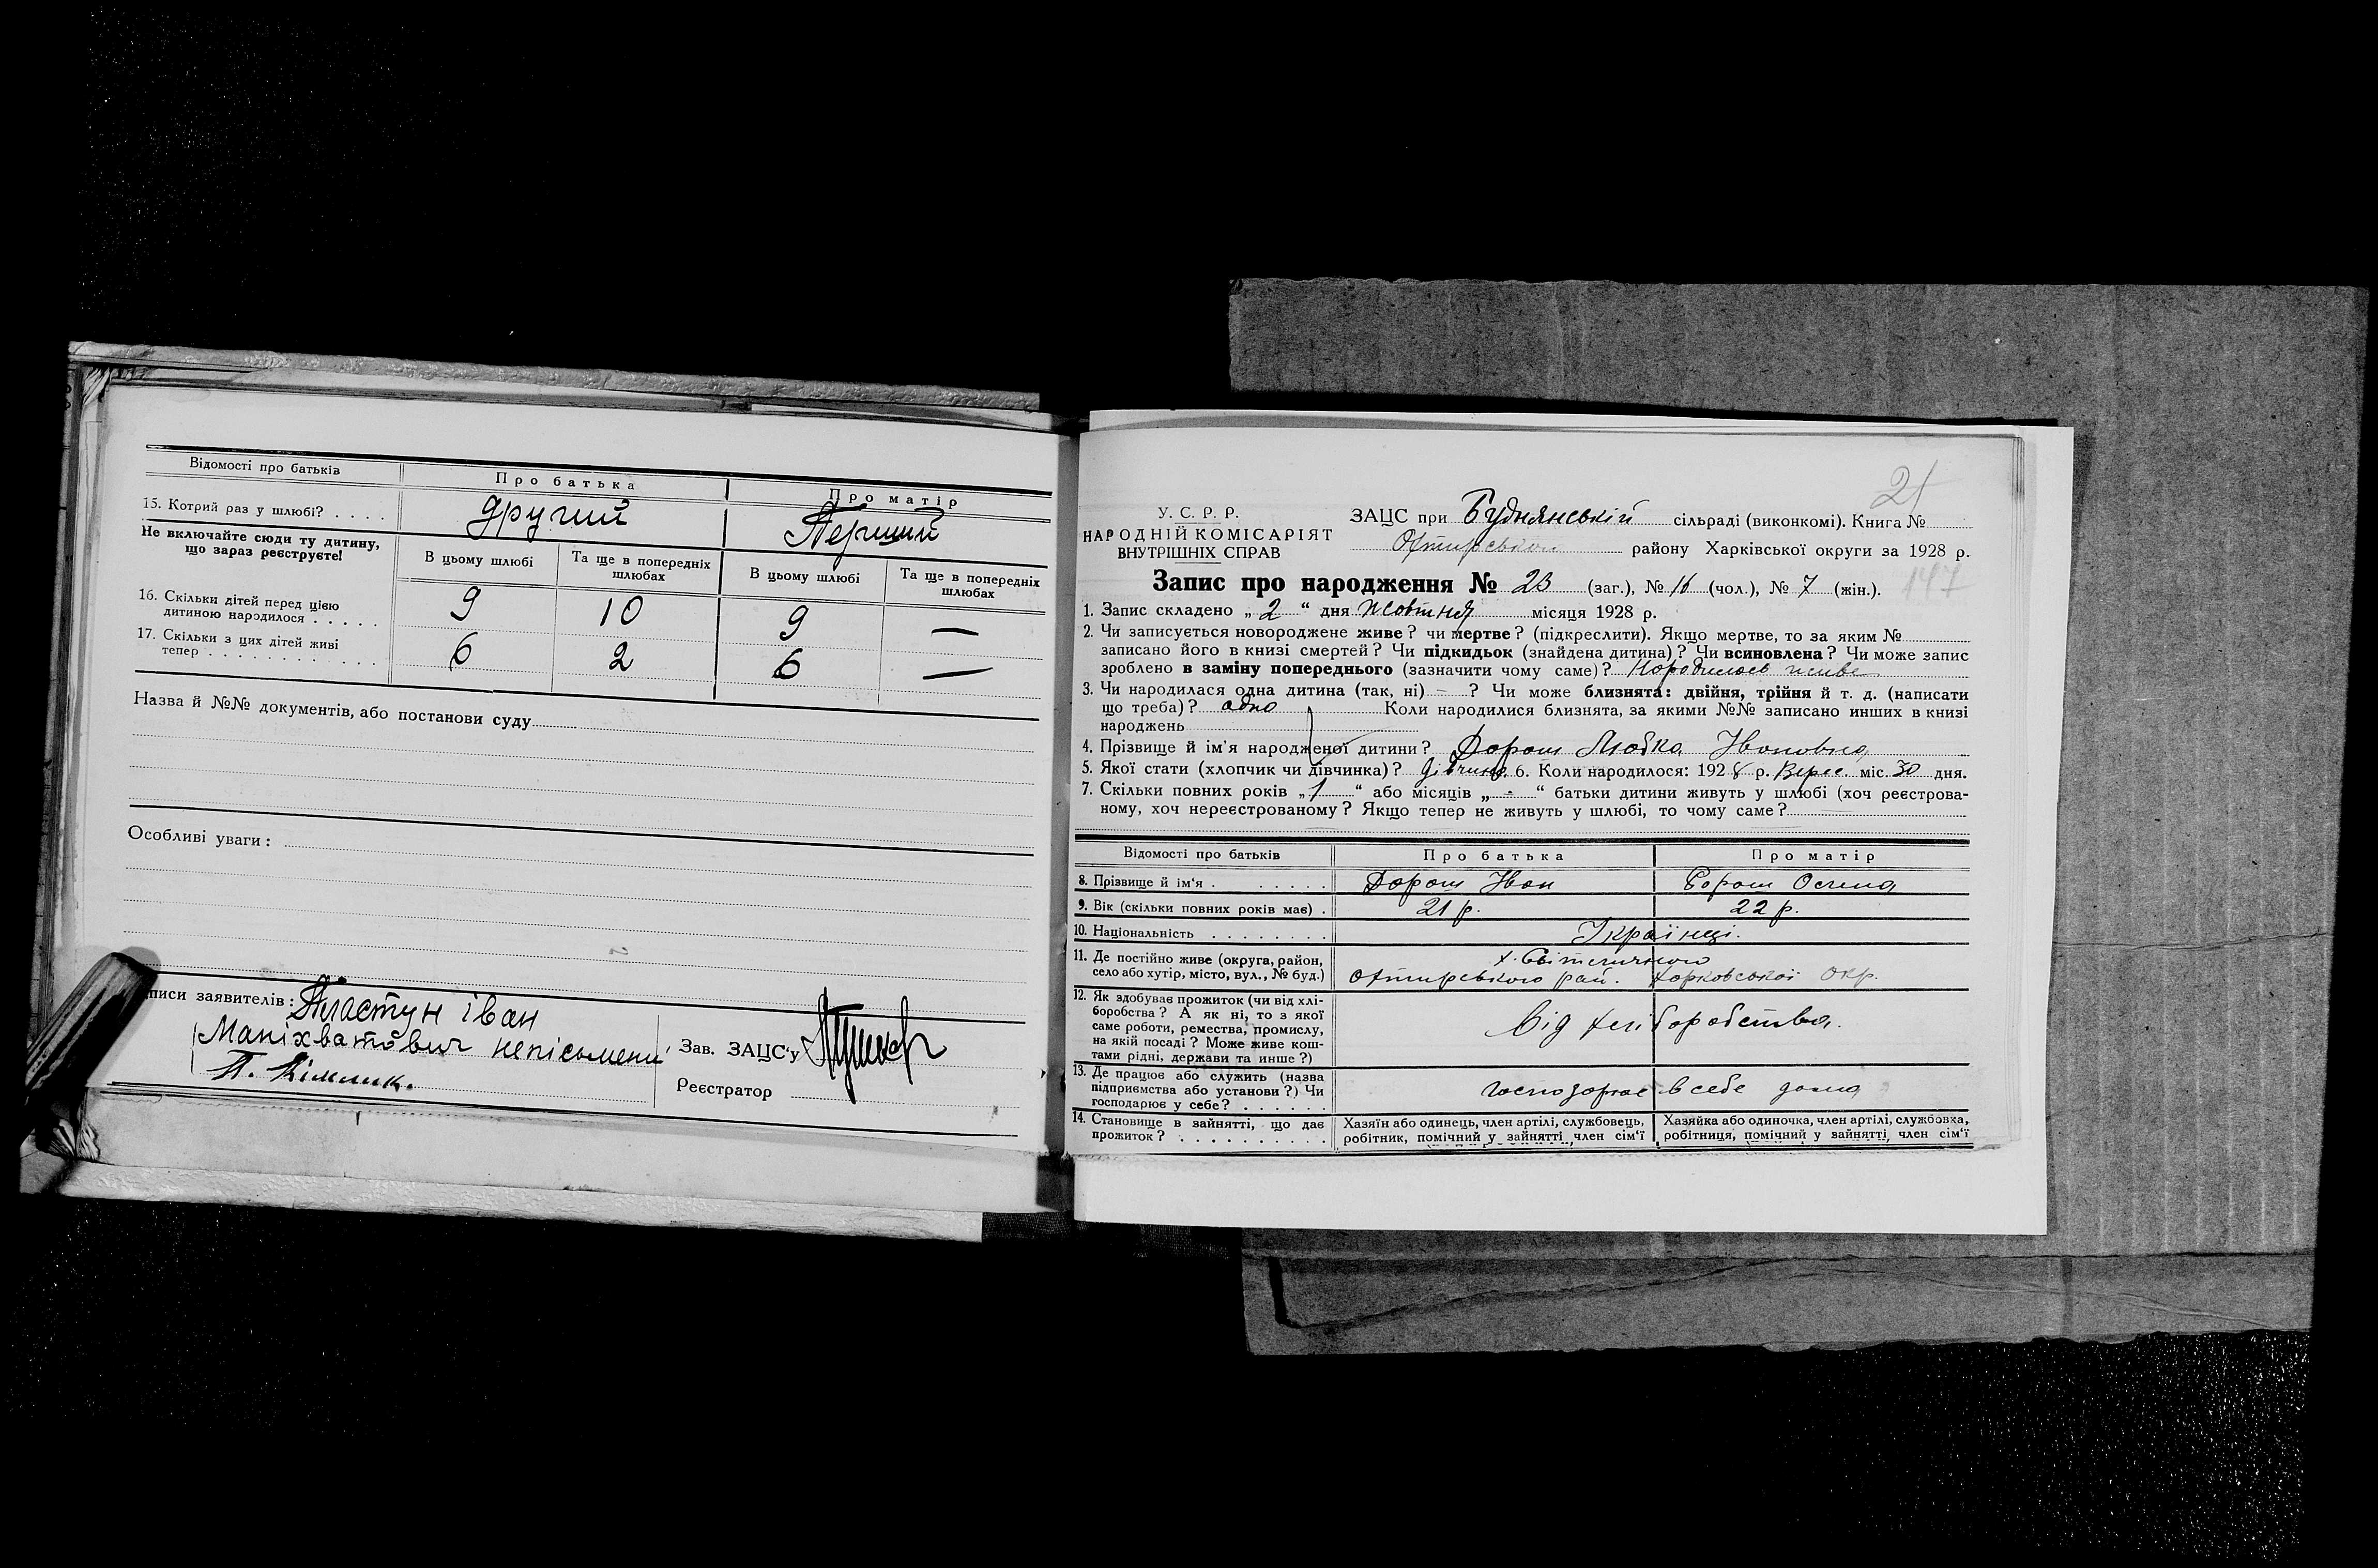 Відомості про батьків
Про батька
Про матір
15. Котрий раз у шлюбі? . . . .
другий
Перший
Не включайте сюди ту дитину, що зараз реєструєте!
В цьому шлюбі
Та ще в попередніх шлюбах
В цьому шлюбі
Та ще в попередніх шлюбах
16. Скільки дітей перед цією дитиною народилося . . . . .
9
10
9
—
17. Скільки з цих дітей живі тепер . . . . . . . . . . . .
6
2
6
—
Назва й №№ документів, або постанови суду
Особливі уваги:
писи заявителів: Пластун іван
непісьмени
Зав. ЗАЦС'у
Реєстратор
21
У. С. Р. Р.
НАРОДНІЙ КОМІСАРІЯТ
ВНУТРІШНІХ СПРАВ
ЗАЦС при Буднянській сільраді (виконкомі). Книга №
району Харківської округи за 1928 р.
147
Запис про народження № 23 (заг.), № 16 (чол.), № 7 (жін.).
1. Запис складено „ 2 “ дня Жовтня місяця 1928 р.
2. Чи записується новороджене живе? чи мертве? (підкреслити). Якщо мертве, то за яким №
записано його в книзі смертей? Чи підкидьок (знайдена дитина)? Чи всиновлена? Чи може запис
зроблено в заміну попереднього (зазначити чому саме)? Народилось живе
3. Чи народилася одна дитина (так, ні) – ? Чи може близнята: двійня, трійня й т. д. (написати
що треба)? одна Коли народилися близнята, за якими №№ записано инших в книзі
народжень
4. Прізвище й ім'я народженої дитини? Дорош Любка Івановна
5. Якої стати (хлопчик чи дівчинка)? Дівчина 6. Коли народилося: 1928 р. Верес. міс. 30 дня.
7. Скільки повних років „ 1 “ або місяців „ - “ батьки дитини живуть у шлюбі (хоч реєстрова-
ному, хоч нереєстрованому? Якщо тепер не живуть у шлюбі, то чому саме?
Відомості про батьків
Про батька
Про матір
8. Прізвище й ім'я . . . . . .
Дорош Іван
Дорош
9. Вік (скільки повних років має) .
21 р.
22 р.
10. Національність . . . . . . . .
Українці.
11. Де постійно живе (округа, район,
село або хутір, місто, вул., № буд.)
Охтирського рай. Харковської окр.
12. Як здобуває прожиток (чи від хлі-
боробства? А як ні, то з якої
саме роботи, ремества, промислу,
на якій посаді? Може живе кош-
тами рідні, держави та инше?)
Від хліборобства.
13. Де працює або служить (назва
підприємства або установи?) Чи
господарює у себе? . . . . . .
господарює в себе дома
14. Становище в зайнятті, що дає
прожиток? . . . . . . . . . .
Хазяїн або одинець, член артілі, службовець,
робітник, помічний у зайнятті член сім'ї
Хазяйка або одиночка, член артілі, службовка,
робітниця, помічний у зайнятті, член сім'ї